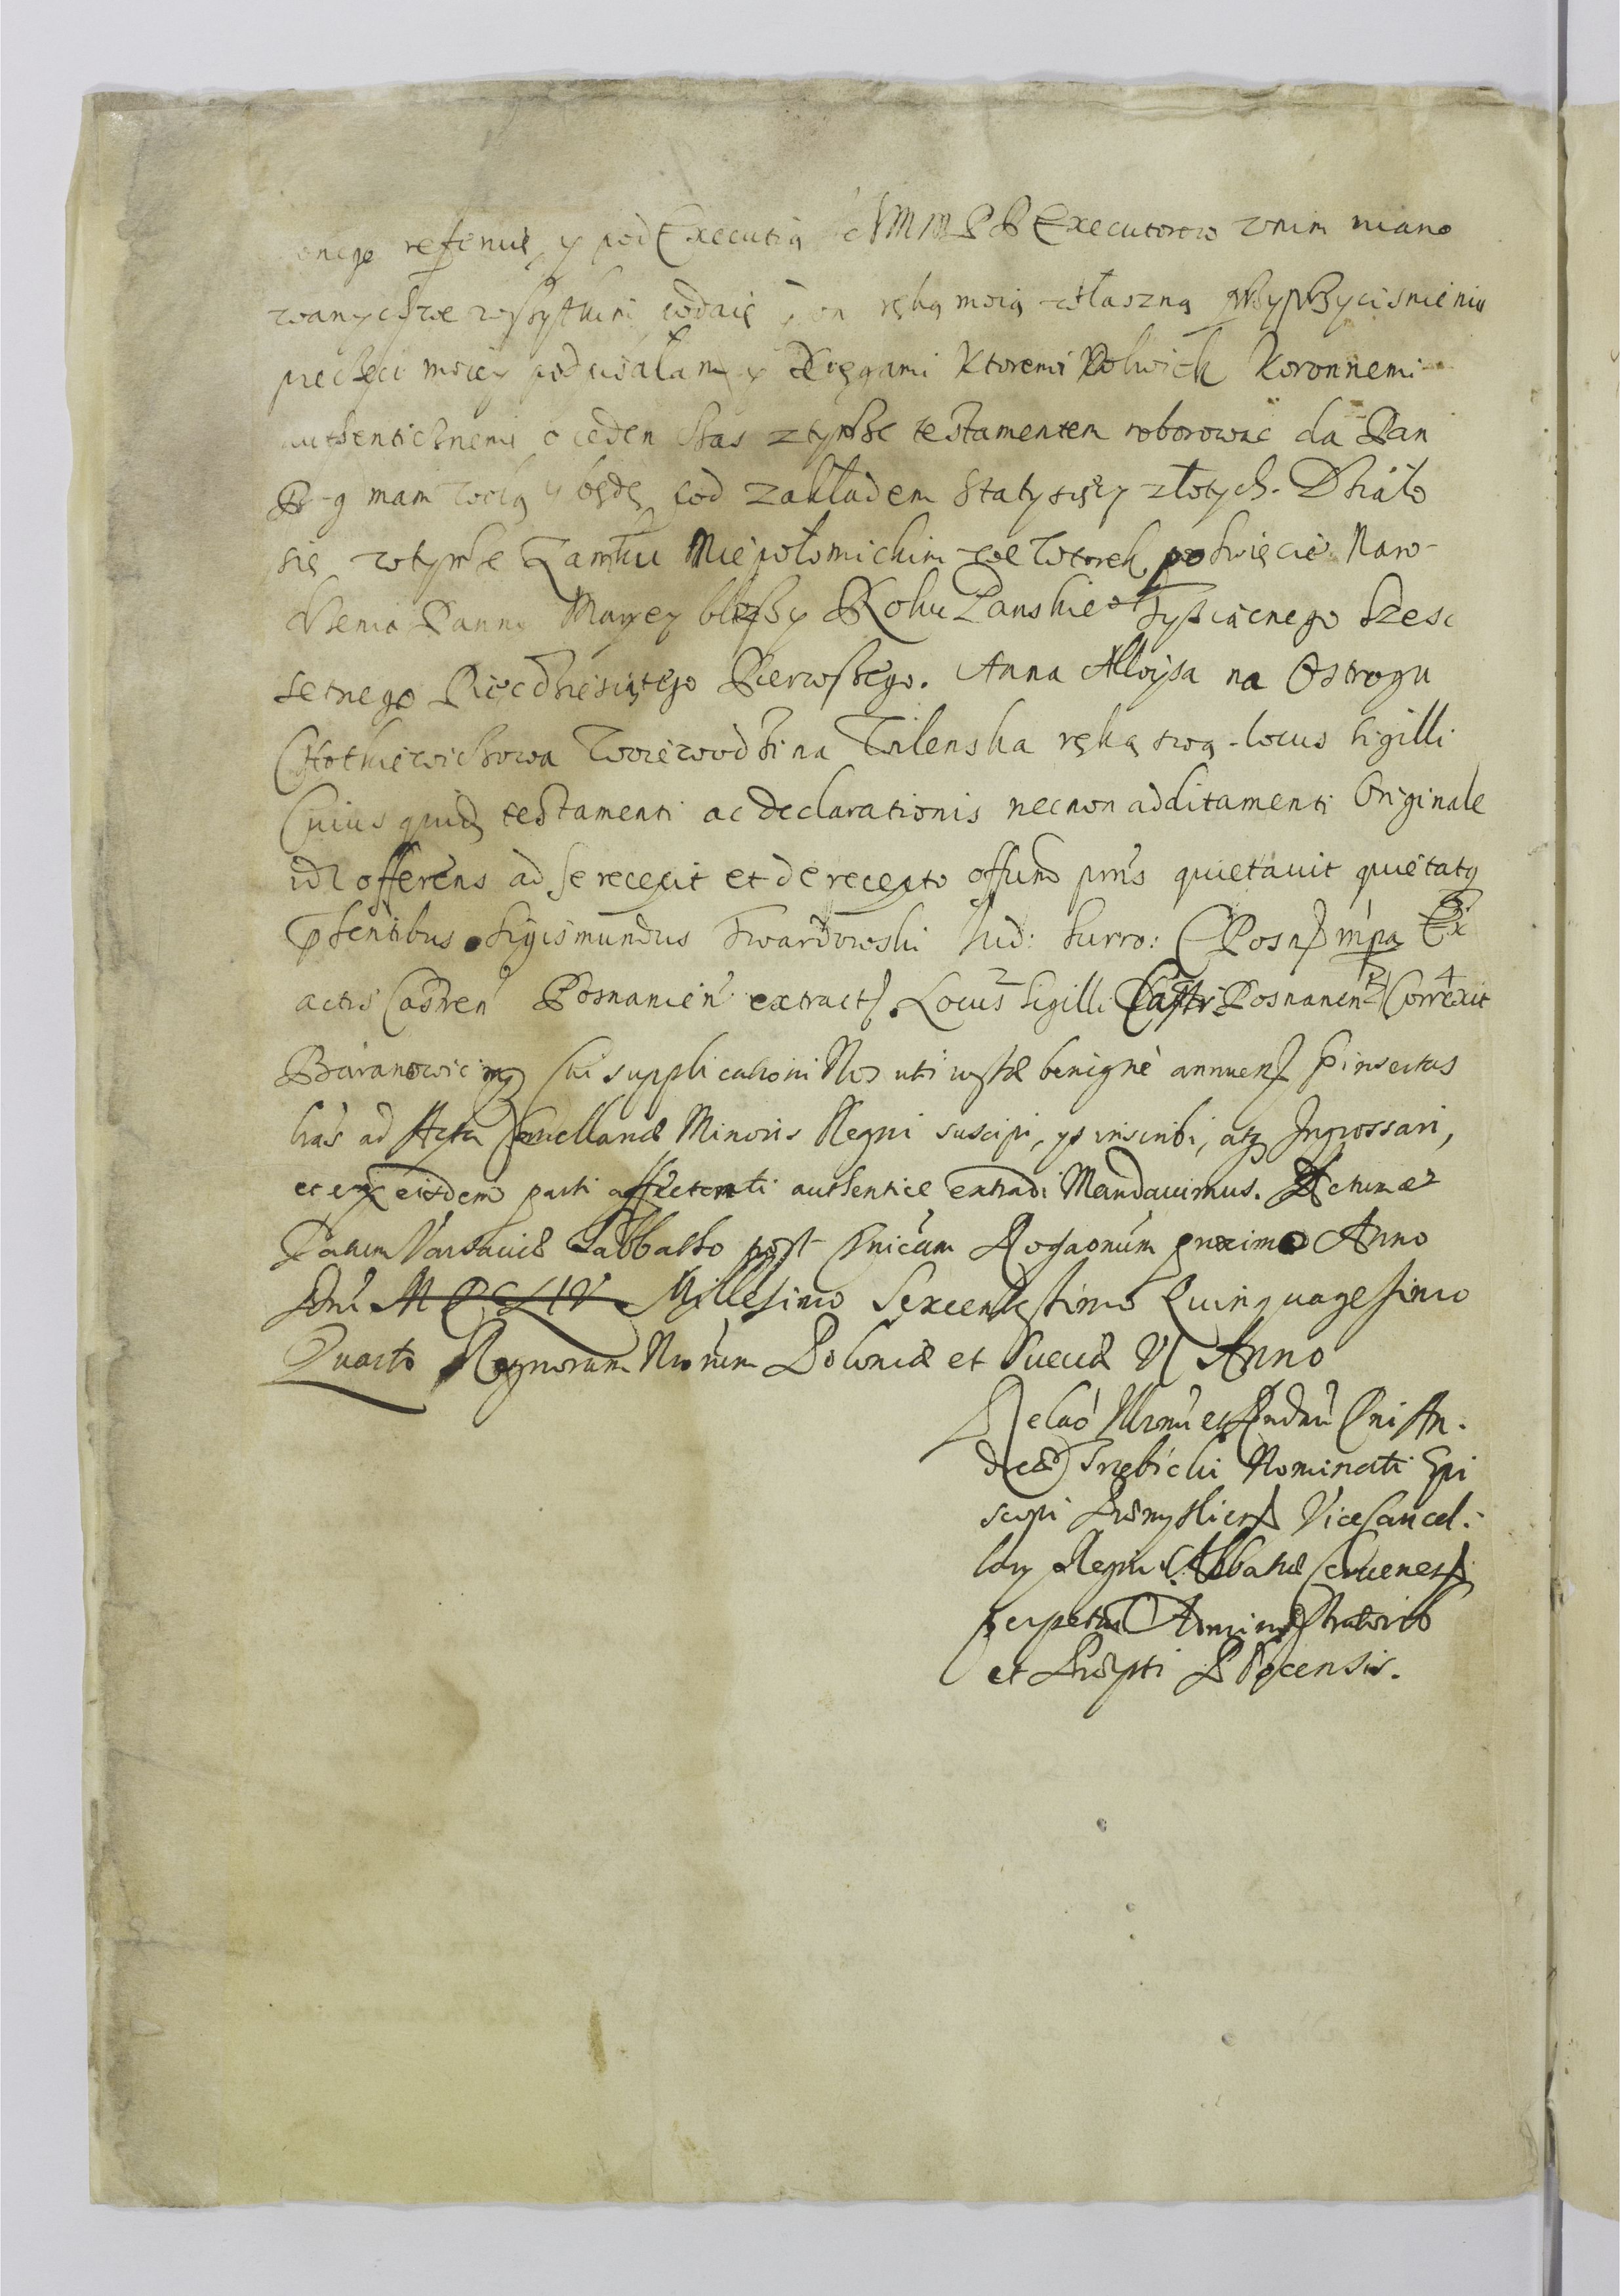 onego refenuię y pod Executią MM PP Executorow w nim miano
wanych we wszytkim podaię y on ręką moią właszną przy przyciśnieniu
pieczęci moiey podpisałam y Xięgami ktoremi kolwiek koronnemi
authenticznemi o ieden czas z tymże testamentem roborować da Pan
B-g mam wolą y będę pod zakładem sta tysięcy złotych. Działo
się w tymże Zamku Niepołomickim we Wtorek po święcie Naro-
dzenia Panny Maryey blizszy Roku Panskieº Tysiącnego szesc
setnego Piędziesiątego Pierwszego. Anna Alloysa na Ostrogu
Chotkiewiczowa Woiewodzina Wilenska ręką swą. locus sigilli
Cuius quid testamenti ac declarationis necnon additamenti Originale
idz offerens ad se recepit et de recepto offum prns quietavit quietatq
pñsentibus. Sigismundus Twardowski Jud: Surro: Posn mpa Ex
actis Castren Posnanien extract. Locus Sigilli Castr Posnanen Correxit
Baranowic mp Cui supplicationi Nos uti iustæ benignè annuen pinsertas
lras ad Acta Cancellariæ Minoris Regni suscipi, ys inscribi, atq Ingrossari,
et ex eisdem parti affectanti authentice extradi Mandavimus. Actum et
Datum Varsaviæ Sabbatho post Dnicam Rogaonum proximo Anno
Dni M D C L I V Millesimo Sexcentesimo Quinquagesimo
Quarto Regnorum Nrorum Poloniæ et Sueciæ VI Anno
Relaõ Illrmi et Rndmi Dni An.
dreæ Trzebicki Nominati Epi
scopi Præmysliens Vice Cancel.
lary Regni Abbatiæ Czervenens
perpetui Administratoris
et Præpti Plocensis.